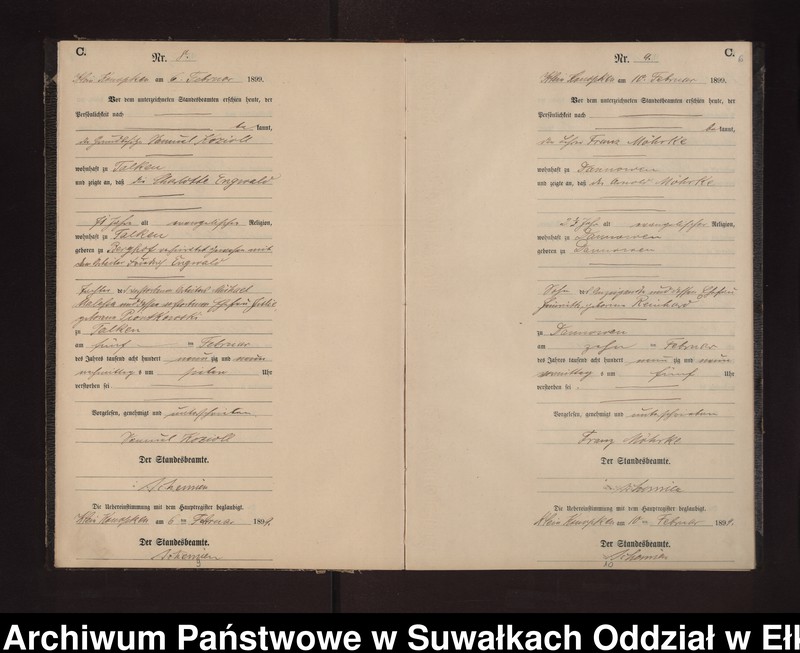 C.
Nr. 8.
Klein Konopken am 6 Februar 1899.
Vor dem unterzeichneten Standesbeamten erschien heute, der
Persönlichkeit nach
be kannt,
Samuel Kozioll
wohnhaft zu Talken
und zeigte an, daß die Charlotte Engwald
Jahre alt evangelischer Religion,
wohnhaft zu Talken
geboren zu
Engwald
Tochter des verstorbenen Arbeiters Michael
und dessen verstorbenen Ehefrau
geborene Piontkowski
zu Talken
am fünf ten Februar
des Jahres tausend acht hundert neun zig und neun
nachmittag s um sieben Uhr
verstorben sei
Vorgelesen, genehmigt und unterschrieben
Samuel Kozioll
Der Standesbeamte.
Die Uebereinstimmung mit dem Hauptregister beglaubigt.
Klein Konopken am 6 ten Februar 1899.
Der Standesbeamte.
C.
6
Nr.
Klein Konopken am 10 Februar 1899.
Vor dem unterzeichneten Standesbeamten erschien heute, der
Persönlichkeit nach
be kannt,
der Franz Möhrke
wohnhaft zu Dannowen
und zeigte an, daß der Arnold Möhrke
alt evangelischer Religion,
wohnhaft zu Dannowen
geboren zu Dannowen
Sohn des Anzeigenden und dessen Ehefrau
geborene Reinhard
zu Dannowen
am zehn ten Februar
des Jahres tausend acht hundert neun zig und neun
vormittag s um fünf Uhr
verstorben sei
Vorgelesen, genehmigt und unterschrieben
Franz Möhrke
Der Standesbeamte.
Die Uebereinstimmung mit dem Hauptregister beglaubigt.
Klein Konopken am 10 ten Februar 1899.
Der Standesbeamte.
Archiwum Państwowe w Suwałkach Oddział w Ełk